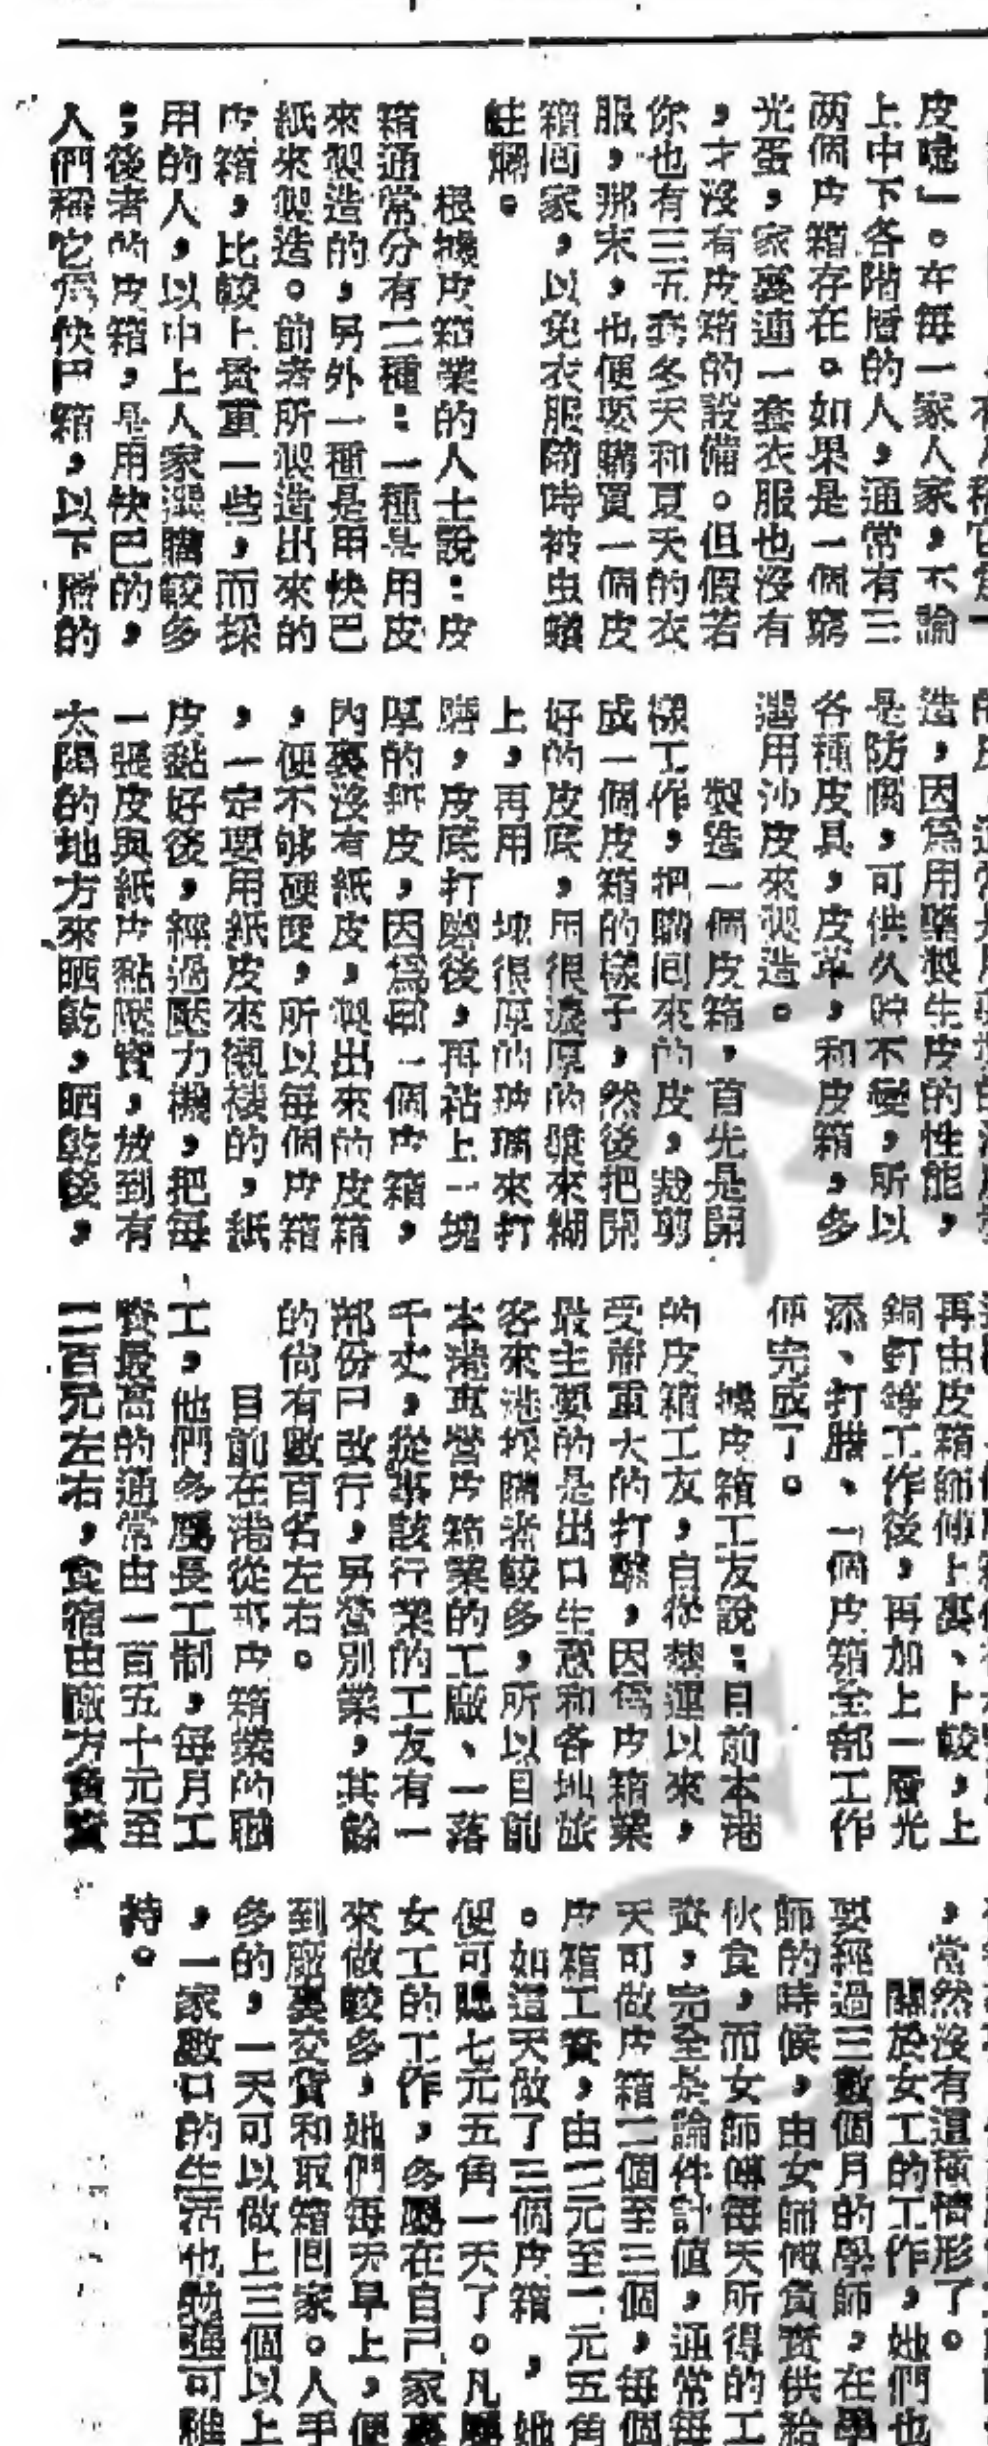 皮喼」。在每一家人家，不論
上中下各階層的人，通常有三
两個皮箱存在。如果是一個窮
光蛋，家裏連一套衣服也沒有
，才沒有皮箱的設備。但假若
你也有三五套冬天和夏天的衣
服，那末，也便要購買一個皮
箱囘家，以免衣服隨時被虫蟻
蛀爛。
根據皮箱業的人士說：皮
箱通常分有二種：一種是用皮
來製造的，另外一種是用快巴
紙來製造。前者所製造出來的
皮箱，比較上貴重一些，而採
用的人，以中上人家選購較多
；後者的皮箱，是用快巴的，
人們稱它爲快巴箱，以下層的
造，因爲用藥製生皮的性能，
是防腐，可供久貯不變，所以
各種皮具，皮革，和皮箱，多
選用沙皮來製造。
製造一個皮箱，首先是開
樣工作，把購囘來的皮，裁剪
成一個皮箱的樣子，然後把開
好的皮底，用很濃厚的漿來糊
上，再用 塊很厚的玻璃來打
磨，皮底打磨後，再粘上一塊
厚的紙皮，因爲每一個皮箱，
內裏沒有紙皮，製出來的皮箱
，便不够硬度，所以每個皮箱
，一定要用紙皮來襯裱的，紙
皮黏好後，經過壓力機，把每
一張皮與紙皮黏壓實，放到有
太陽的地方來晒乾，晒乾後，
再由皮箱師傅上蓋、上較，上
銅釘等工作後，再加上一層光
漆、打腊、一個皮箱全部工作
便完成了。
據皮箱工友說：目前本港
的皮箱工友，自從禁運以來，
受着重大的打擊，因爲皮箱業
最主要的是出口生意和各地旅
客來港採購者較多，所以目前
本港專營皮箱業的工廠、一落
千丈，從事該行業的工友有一
部份已改行，另營別業，其餘
的尙有數百名左右。
目前在港從事皮箱業的職
工，他們多屬長工制，每月工
資最高的通常由一百五十元至
二百元左右，食宿由廠方負責
，當然沒有這種情形了。
關於女工的工作，她們也
要經過三數個月的學師，在學
師的時候，由女師傅負責供給
伙食，而女師傅每天所得的工
資，完全是論件計值，通常每
天可做皮箱二個至三個，每個
皮箱工資，由二元至二元五角
。如這天做了三個皮箱，她
便可賺七元五角一天了。凡屬
女工的工作，多屬在自己家裏
來做較多，她們每天早上，便
到廠裏交貨和取箱囘家。人手
多的，一天可以做上三個以上
，一家數口的生活也勉強可維
持。